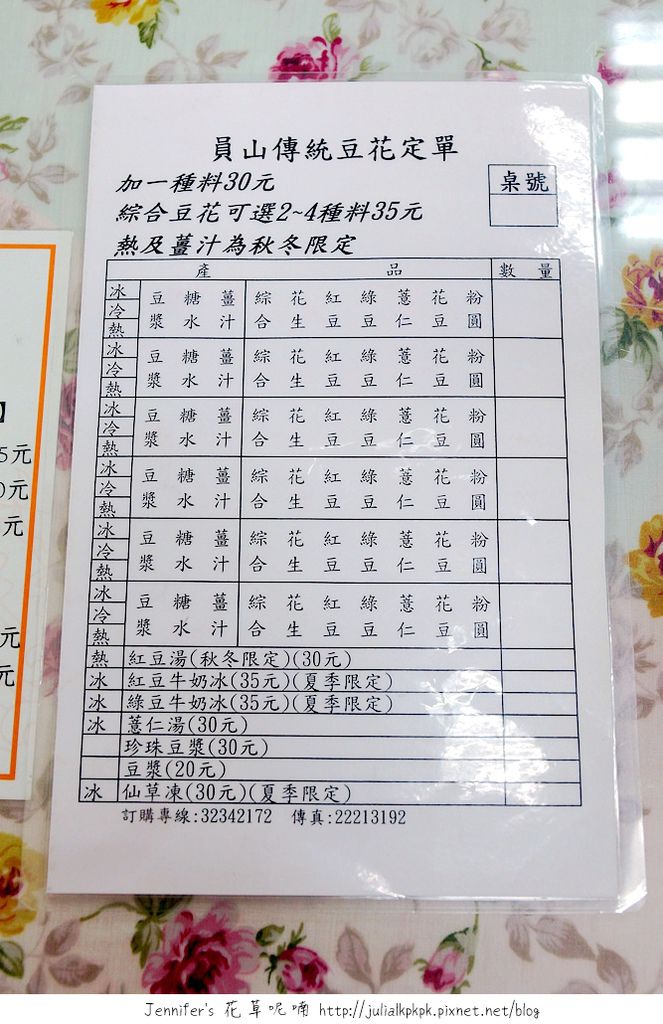 員山傳統豆花定單
加一種料30元
桌號
綜合豆花可選2~4種料35元
熱及薑汁為秋冬限定
產 品 數 量
冰 冷 熱 豆漿 糖水 薑汁 綜合 花生 紅豆 綠豆 薏仁 花豆 粉圓
冰 冷 熱 豆漿 糖水 薑汁 綜合 花生 紅豆 綠豆 薏仁 花豆 粉圓
冰 冷 熱 豆漿 糖水 薑汁 綜合 花生 紅豆 綠豆 薏仁 花豆 粉圓
冰 冷 熱 豆漿 糖水 薑汁 綜合 花生 紅豆 綠豆 薏仁 花豆 粉圓
冰 冷 熱 豆漿 糖水 薑汁 綜合 花生 紅豆 綠豆 薏仁 花豆 粉圓
冰 冷 熱 豆漿 糖水 薑汁 綜合 花生 紅豆 綠豆 薏仁 花豆 粉圓
熱 紅豆湯(秋冬限定)(30元)
冰 紅豆牛奶冰(35元)(夏季限定)
冰 綠豆牛奶冰(35元)(夏季限定)
冰 薏仁湯(30元)
珍珠豆漿(30元)
豆漿(20元)
冰 仙草凍(30元)(夏季限定)
訂購專線:32342172 傳真:22213192
】
5元
0元
元
元
元
Jennifer's 花草呢喃 http://julialkpkpk.pixnet.net/blog